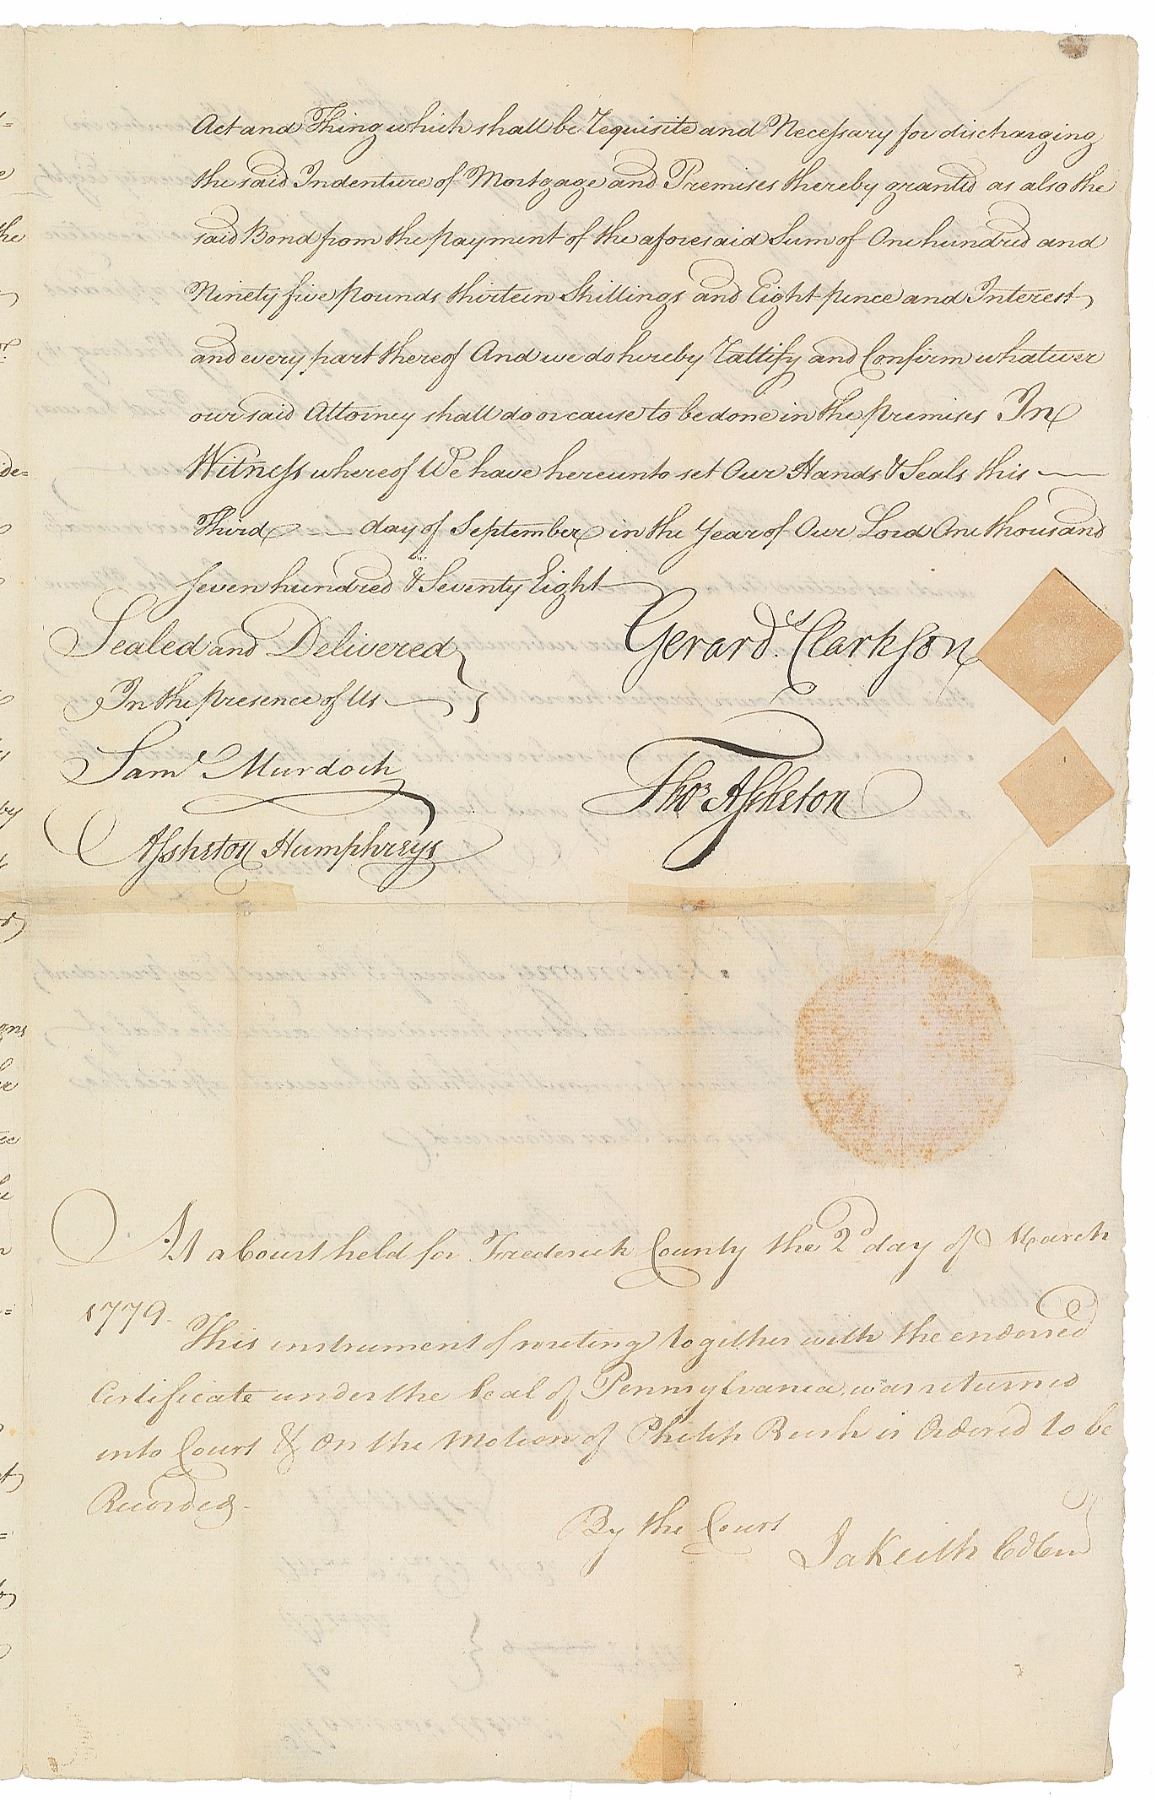 Act and Thing which shall be requisite and Necessary for discharging
the said Indenture of Mortgage and Premises thereby granted as also the
said Bond from the payment of the aforesaid Sum of One hundred and
Ninety five pounds thirteen Shillings and Eight pence and Interest
and every part thereof And we do hereby rattify and Confirm whatever
our said Attorney shall do or cause to be done in the premises In
Witness whereof We have hereunto set Our Hands & Seals this
Third day of September in the Year of Our Lord One thousand
seven hundred & Seventy Eight
Sealed and Delivered
In the presence of Us
Gerard. Clarkson
Saml Murdoch
Thos Assheton
Assheton Humphreys
At a Court held for Frederick County the 2d day of March
1779.
This instrument of writing together with the endorsed
Certificate under the Seal of Pennsylvania was returned
into Court & On the Motion of Philip Bush is Ordered to be
Recorded.
By the Court
Ja Keith
the
de=
by
ons